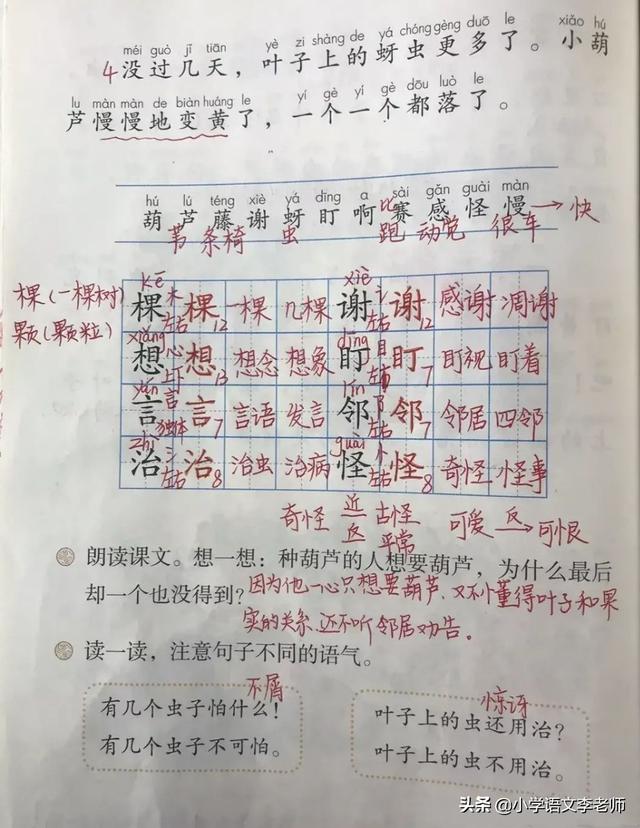 méi guò jǐ tiān yè zi shàng de yá chóng gèng duō le xiǎo hú
4没过几天，叶子上的蚜虫更多了。小葫
lu màn màn de biàn huáng le yí gè yí gè dōu luò le
芦慢慢地变黄了，一个一个都落了。
hú lú téng xiè yá dīng a sài gǎn guài màn
葫芦藤谢蚜盯啊赛感怪慢→快
苇 条椅 虫 比跑 动党 很车
kē xiè
棵(一棵树) 棵 木 左右 棵12 一棵 几棵 谢 讠 左右 谢12 感谢 凋谢
颗(颗粒)
xiǎng dīng
想 心 上下 想13 想念 想象 盯 目 左右 盯7 盯视 盯着
yán lín
言 言 独体 言7 言语 发言 邻 阝 左右 邻7 邻居 四邻
zhì guài
治 氵 左右 治8 治虫 治病 怪 忄 左右 怪8 奇怪 怪事
奇怪 近 古怪 可爱 反→ 可恨
反 平常
朗读课文。想一想：种葫芦的人想要葫芦，为什么最后
却一个也没得到？因为他一心只想要葫芦，又不懂得叶子和果
实的关系，还不听邻居劝告。
读一读，注意句子不同的语气。
不屑
有几个虫子怕什么！
有几个虫子不可怕。
惊讶
叶子上的虫还用治？
叶子上的虫不用治。
头条 @小学语文李老师